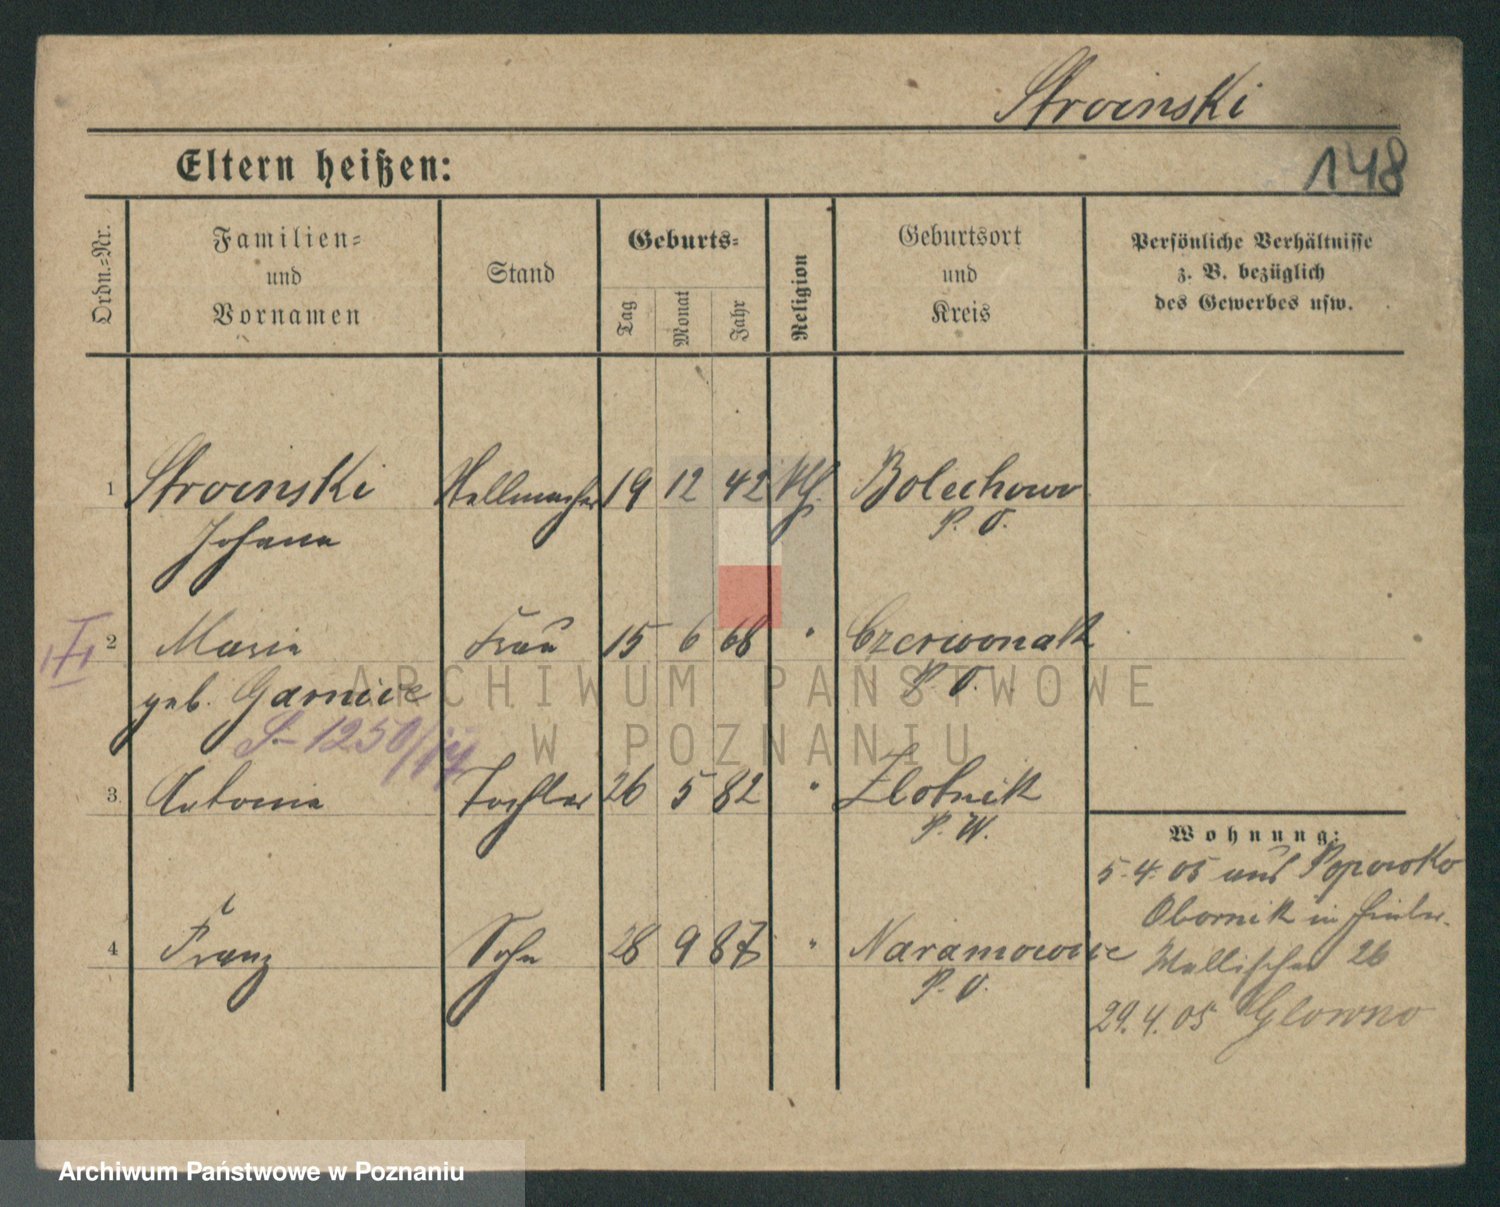 Stroinski
Eltern heißen:
148
Ordn.-Nr.
Familien-
und
Vornamen
Stand
Geburts-
Tag
Monat
Jahr
Religion
Geburtsort
und
Kreis
Persönliche Verhältnisse
z. B. bezüglich
des Gewerbes usw.
1 Stroinski Stellmacher 19 12 42 kth. Bolechowo
Johann P. O.
2 Maria Frau 15 6 68 " Czerwonak
geb. Garniec P. O.
S-1250/
3 Antonie Tochter 26 5 82 " Zlotnik
P. W.
4 Franz Sohn 28 9 87 " Naramowice
P. O.
Wohnung:
5.4.05 aus Popowko
Obornik in Hinter-
Wallischei 26
29.4.05 Glowno
ARCHIWUM PAŃSTWOWE
W POZNANIU
Archiwum Państwowe w Poznaniu